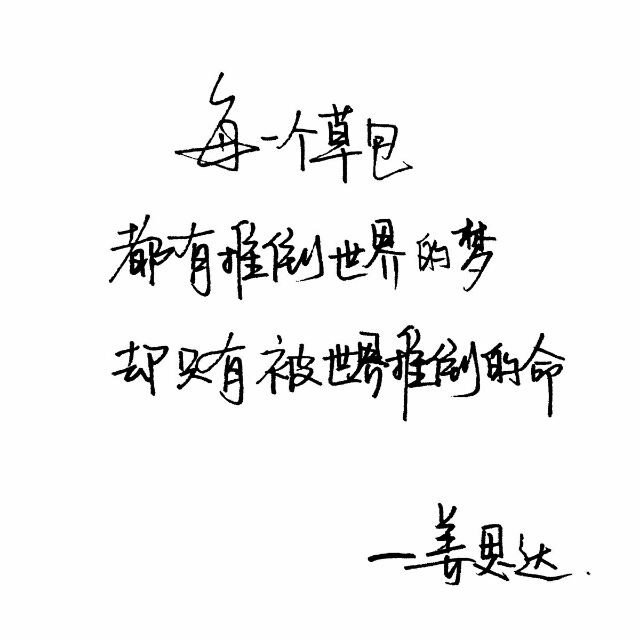 每一个草包
都有推倒世界的梦
却只有被世界推倒的命
—姜思达.